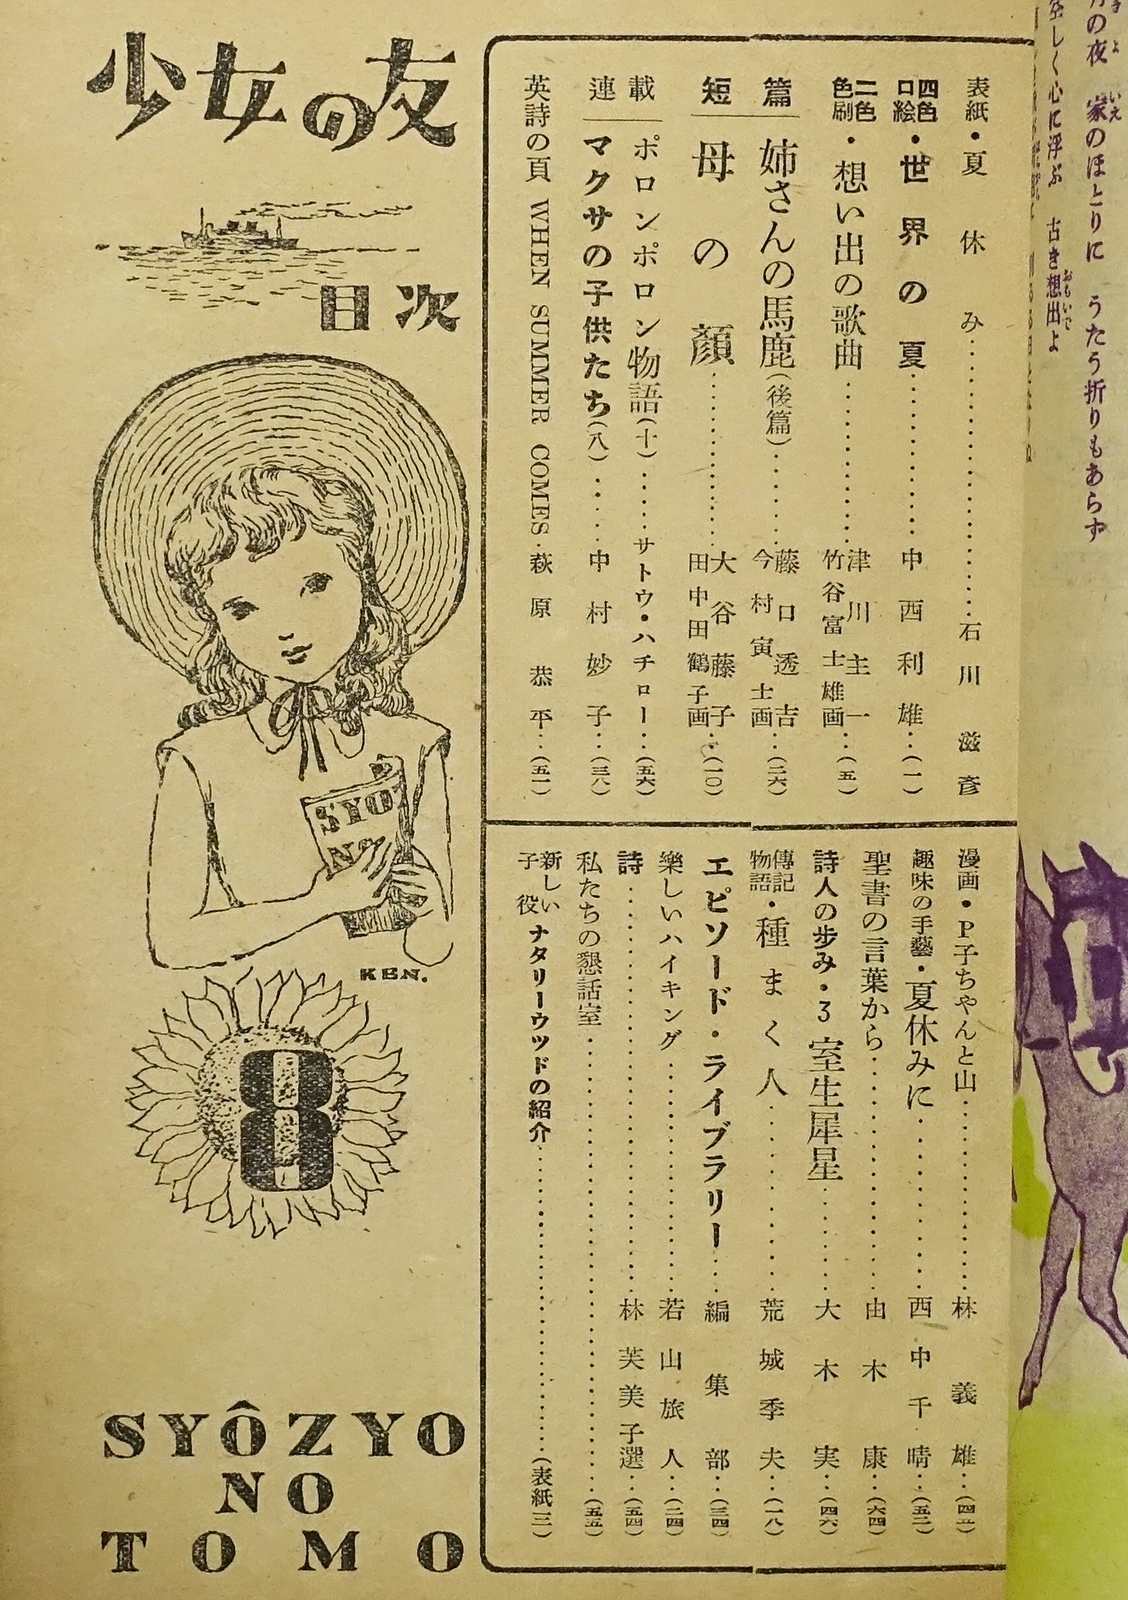 月の夜　家のほとりに　うたう折りもあらず
空しく心に浮ぶ　古き想出よ
表紙・夏休み……石川滋彦
四色口絵・世界の夏……中西利雄…(一)
二色色刷・想い出の歌曲……津川主一 竹谷富士雄画…(五)
短篇
姉さんの馬鹿(後篇)……藤口透吉 今村寅士画…(二六)
母の顔……大谷藤子 田中田鶴子画…(一〇)
連載
ポロンポロン物語(十)……サトウ・ハチロー…(五六)
マクサの子供たち(八)……中村妙子…(三八)
英詩の頁 WHEN SUMMER COMES…萩原恭平…(五一)
漫画・P子ちゃんと山……林義雄…
趣味の手藝・夏休みに……西中千晴…(五二)
聖書の言葉から……由木康…(六四)
詩人の歩み・3 室生犀星……大木実…(四六)
傳記物語・種まく人……荒城季夫…(一八)
エピソード・ライブラリー…編集部…(三四)
樂しいハイキング……若山旅人…(二四)
詩……林芙美子選…(五四)
私たちの懇話室……(五五)
新しい子役 ナタリーウッドの紹介……(表紙三)
少女の友
目次
SYO
NO
KEN.
8
SYÔZYO
NO
TOMO